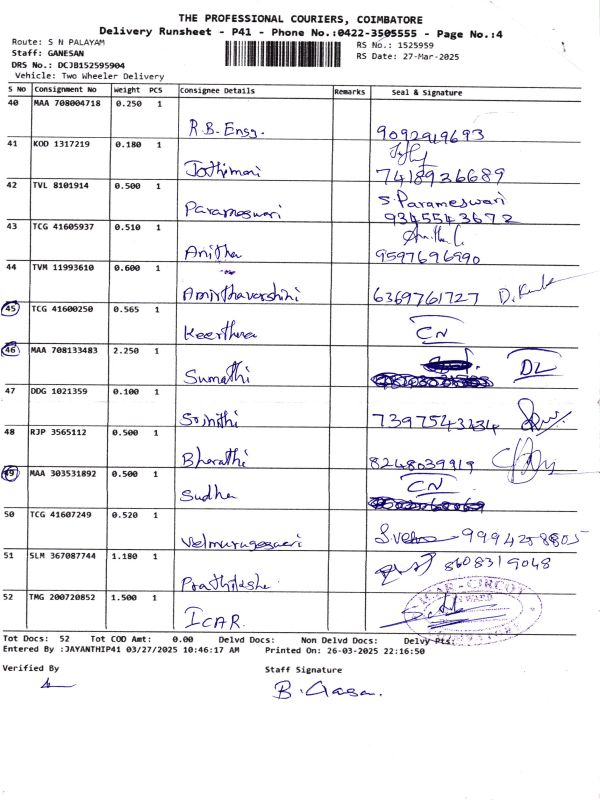 THE PROFESSIONAL COURIERS, COIMBATORE
Delivery Runsheet - P41 - Phone No.:0422-3505555 - Page No.:4
Route: S N PALAYAM
Staff: GANESAN
DRS No.: DCJB152595904
Vehicle: Two Wheeler Delivery
RS No.: 1525959
RS Date: 27-Mar-2025
S No Consignment No Weight PCS Consignee Details Remarks Seal & Signature
40 MAA 708004718 0.250 1
R.B. Engg. 9092919693
41 KOD 1317219 0.180 1
Jothimani 7418926689
42 TVL 8101914 0.500 1 S. Parameswari
Parameswari 9345543672
43 TCG 41605937 0.510 1
Anitha 9597696990
44 TVM 11993610 0.600 1
Amirthavarshini 6369761727
45 TCG 41600250 0.565 1
Keerthna CN
46 MAA 708133483 2.250 1
Sumathi DL
47 DDG 1021359 0.100 1
7397543434
48 RJP 3565112 0.500 1
Bharathi 8248039919
49 MAA 303531892 0.500 1 CN
Sudha
50 TCG 41607249 0.520 1
Velmurugeswari 9994258805
51 SLM 367087744 1.180 1 8608319048
52 TMG 200720852 1.500 1
ICAR
Tot Docs: 52 Tot COD Amt: 0.00 Delvd Docs: Non Delvd Docs: Delvy Pts:
Entered By :JAYANTHIP41 03/27/2025 10:46:17 AM Printed On: 26-03-2025 22:16:50
Verified By Staff Signature